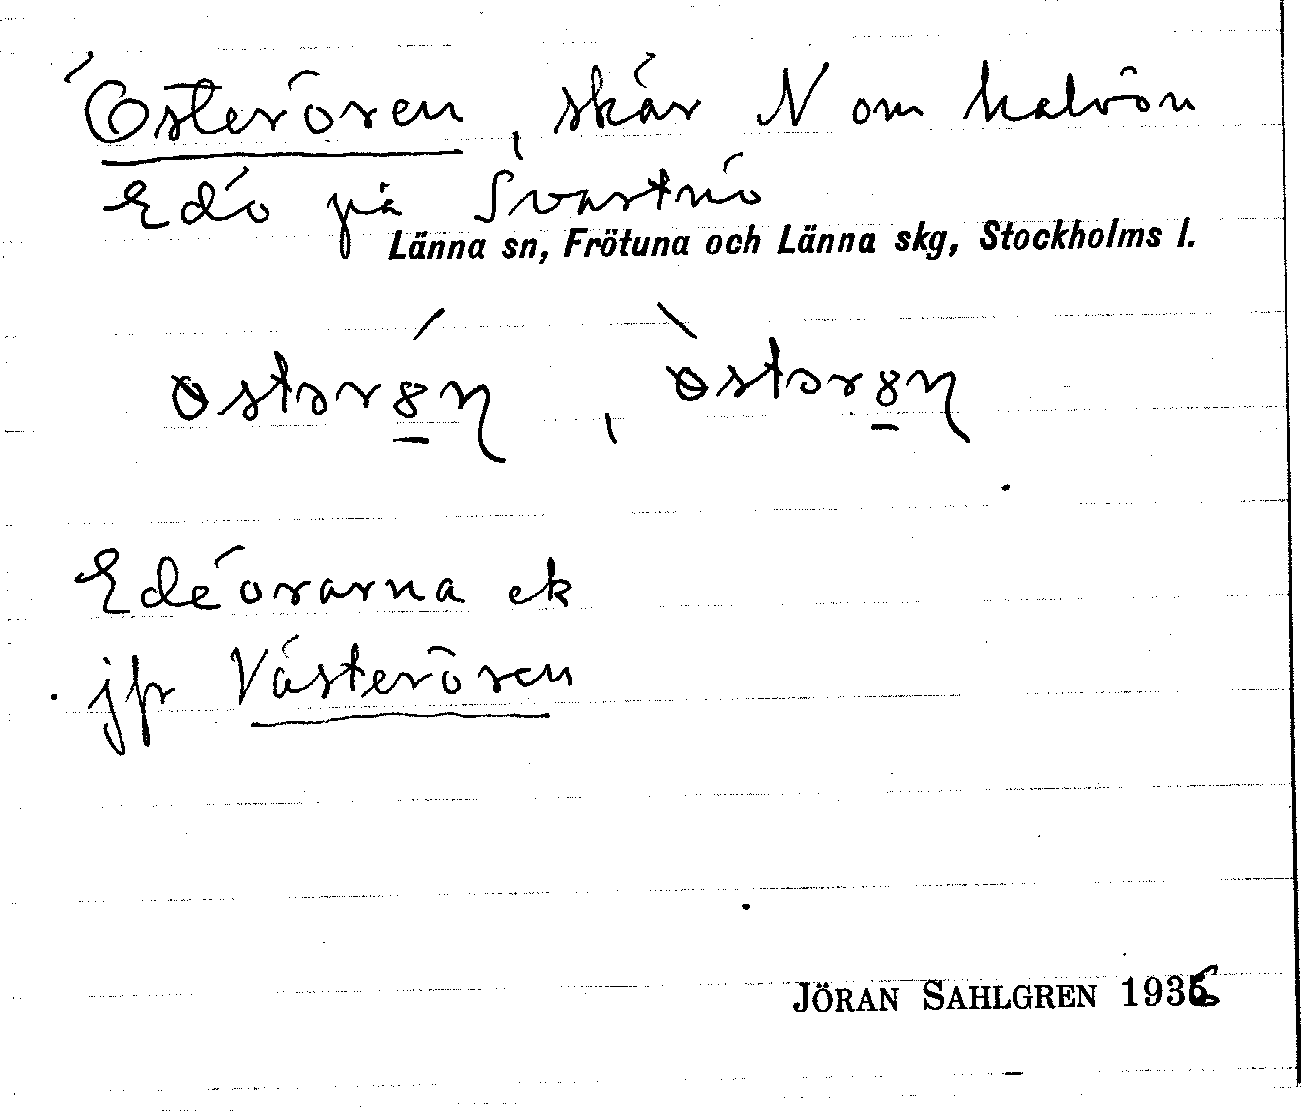 Österören, skär N om halvön
Edö på Svartnö
Länna sn, Frötuna och Länna skg, Stockholms l.
Edöorarna ek
jfr Västerören
JÖRAN SAHLGREN 1936